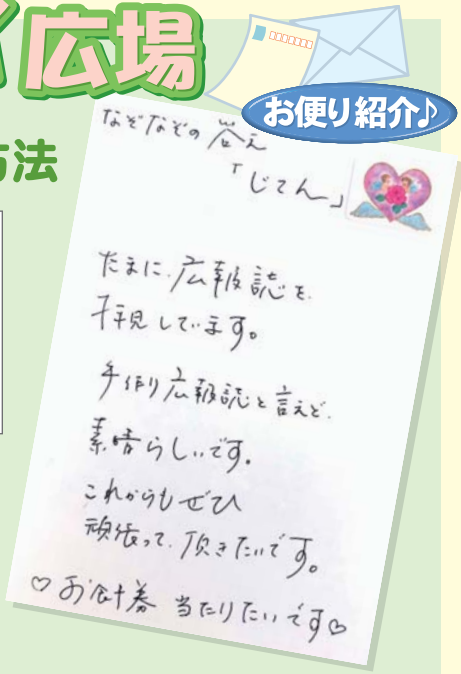 広場
お便り紹介♪
方法
なぞなぞの答え
「じてん」
たまに、広報誌を
拝見しています。
手作り広報誌と言えど、
素晴らしいです。
これからもぜひ
頑張って、頂きたいです。
♡お食事券 当たりたいです♡